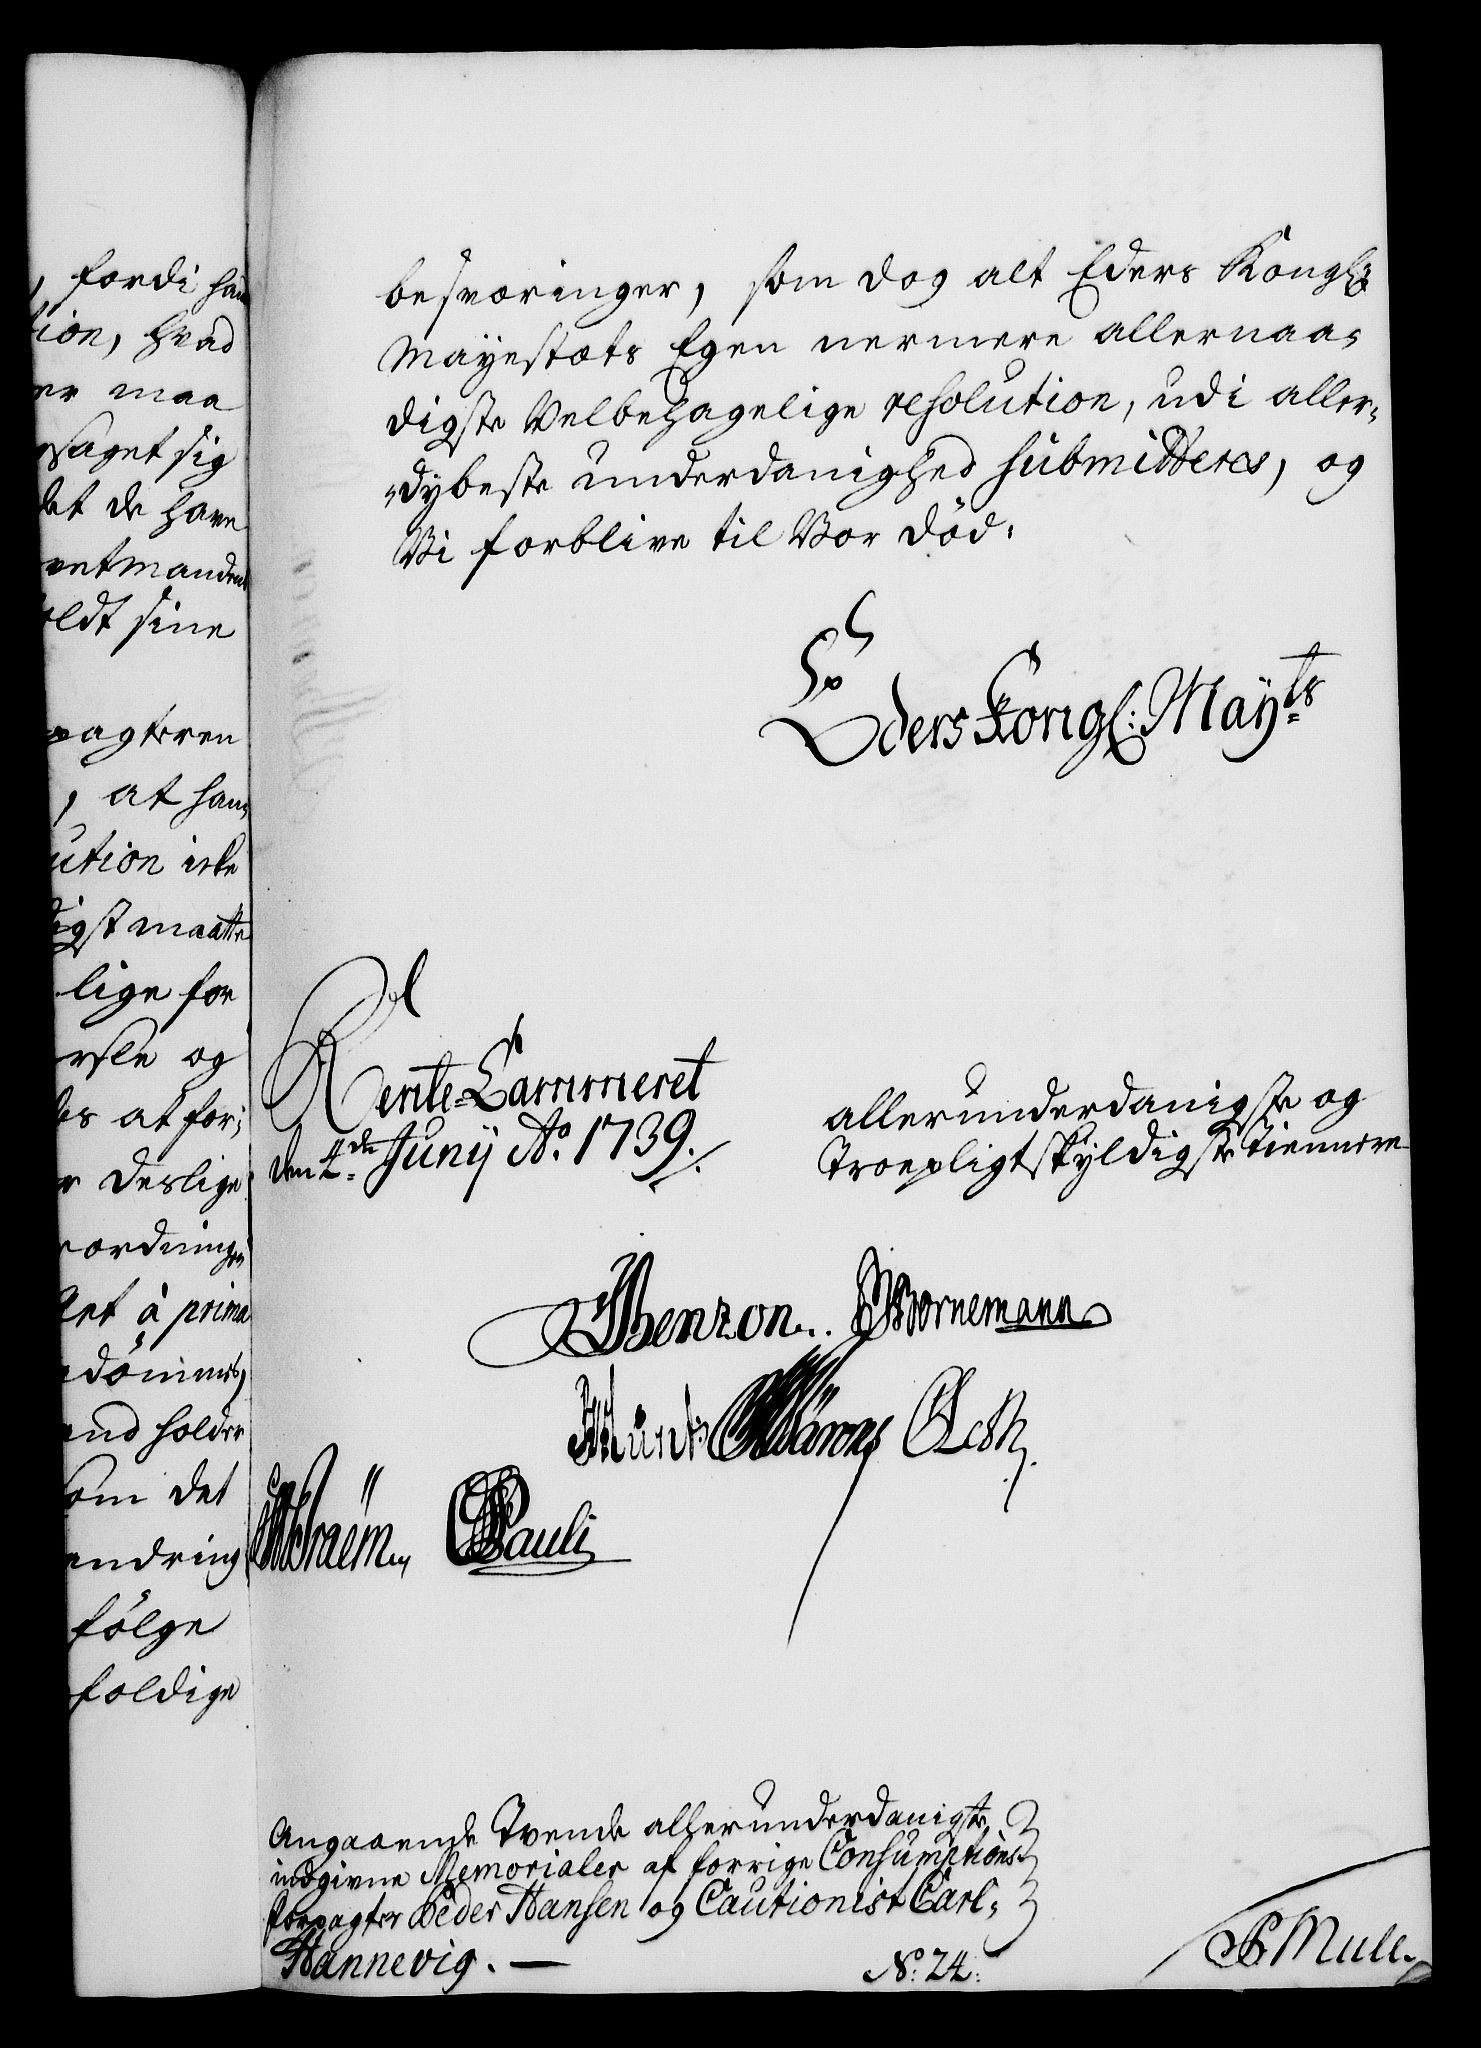 , fordi han
tion, hvad
er maa
saget sig
det de have
vetmanden
oldt sine
pagteren
, at han,
ution icke
digst maatte
lige for
ersle og
des at for;
r deslige
rordningen
let â prima
dömmes,
and holder
som det
endring
fölge
foldige
besværinger, som dog alt Eders Kongl:
Mayestæts Egen nermere allernaa,
digste Velbehagelige resolution, udi aller,
dybeste underdanighed submitteres, og
Vi forblive til Vor Död.
Eders Kongl: Mayts
Rente-Cammeret
den 4de Junij Ao. 1739.
allerunderdanigste og
Troepligtskyldigste tiennere
Benzon. Bornemann
Pauli
Angaaende Tvende allerunderdanigst,
indgivne Memorialer af forrige Consumptions-
forpagter Peder Hansen og Cautionist Carl,
Hannevig. —
No. 24.
Mull.